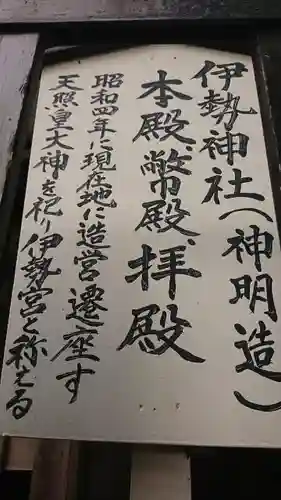 伊勢神社(神明造)
本殿幣殿拝殿
昭和四年に現在地に造営遷座す
天照皇大神を祀り伊勢宮と称える